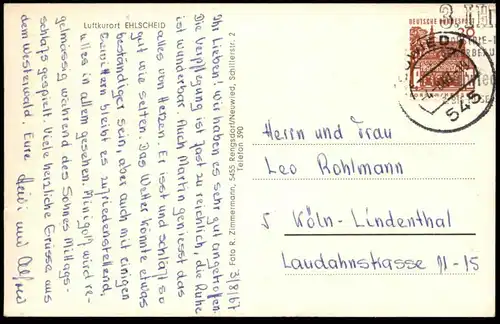 Luftkurort EHLSCHEID
3/8/67
Ihr Lieben! Wir haben es sehr gut angetroffen.
Die Verpflegung ist fast zu reichlich, die Ruhe
ist wunderbar. Auch Martin geniesst das
alles von Herzen. Er isst und schläft so
gut wie selten. Das Wetter könnte etwas
beständiger sein, aber auch mit einigen
Gewittern bleibt es zufriedenstellend,
alles in allem gesehen. Minigolf wird re-
gelmässig während des Sohnes Mittags-
schlafs gespielt. Viele herzliche Grüsse aus
dem Westerwald. Eure Heidi und Alfred
Foto R. Zimmermann, 5455 Rengsdorf/Neuwied, Schillerstr. 2
Telefon 390
DEUTSCHE BUNDESPOST
545
Herrn und Frau
Leo Rohlmann
5 Köln-Lindenthal
Laudahnstrasse 11-15